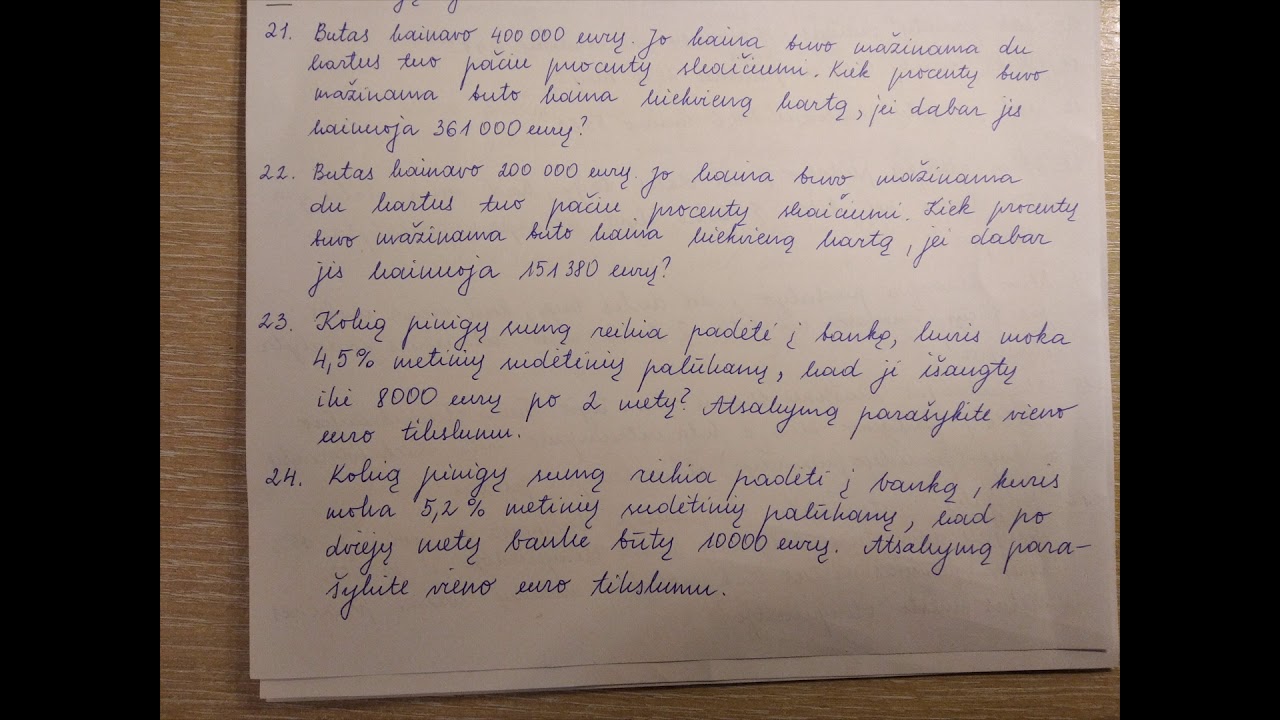 21. Butas kainavo 400 000 eurų. Jo kaina buvo mažinama du
kartus tuo pačiu procentų skaičiumi. Kiek procentų buvo
mažinama buto kaina kiekvieną kartą, jei dabar jis
kainuoja 361 000 eurų?
22. Butas kainavo 200 000 eurų. Jo kaina buvo mažinama
du kartus tuo pačiu procentų skaičiumi. Kiek procentų
buvo mažinama buto kaina kiekvieną kartą, jei dabar
jis kainuoja 151 380 eurų?
23. Kokią pinigų sumą reikia padėti į banką, kuris moka
4,5% metinių sudėtinių palūkanų, kad ji išaugtų
iki 8000 eurų po 2 metų? Atsakymą parašykite vieno
euro tikslumu.
24. Kokią pinigų sumą reikia padėti į banką, kuris
moka 5,2% metinių sudėtinių palūkanų, kad po
dviejų metų banke būtų 10000 eurų. Atsakymą para-
šykite vieno euro tikslumu.